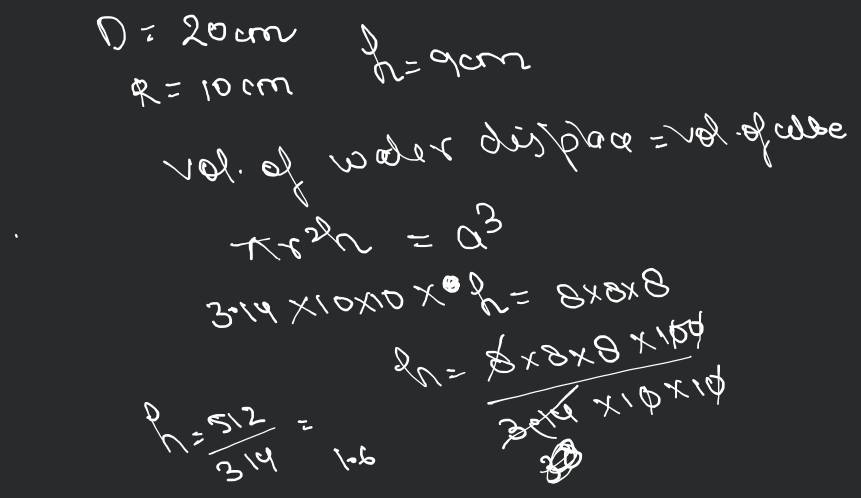 D = 20cm
h = 9cm
R = 10 cm
vol. of water displace = vol. of cube
πr²h = a³
3.14 × 10 × 10 × h = 8×8×8
h = 8×8×8×100 / 3.14 ×10×10
h = 512 / 314 = 1.6